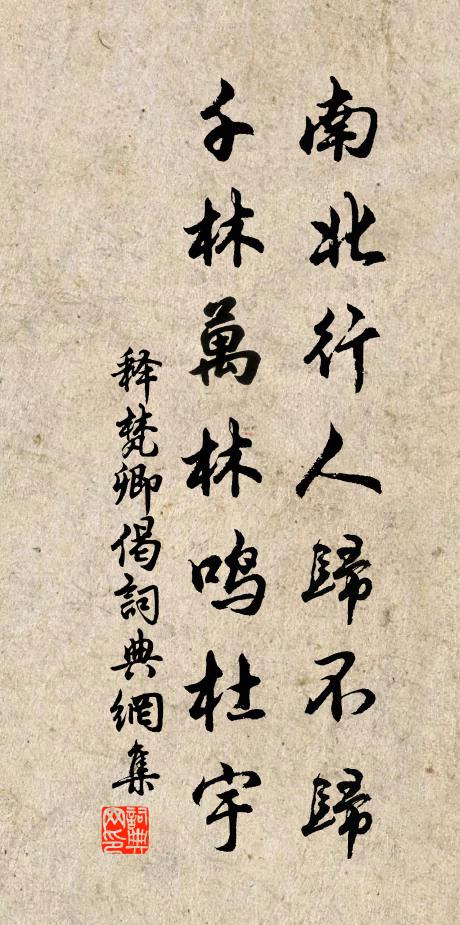 南北行人歸不歸
千林萬林鳴杜宇
釋梵卿偈詞典網集
詞典網印